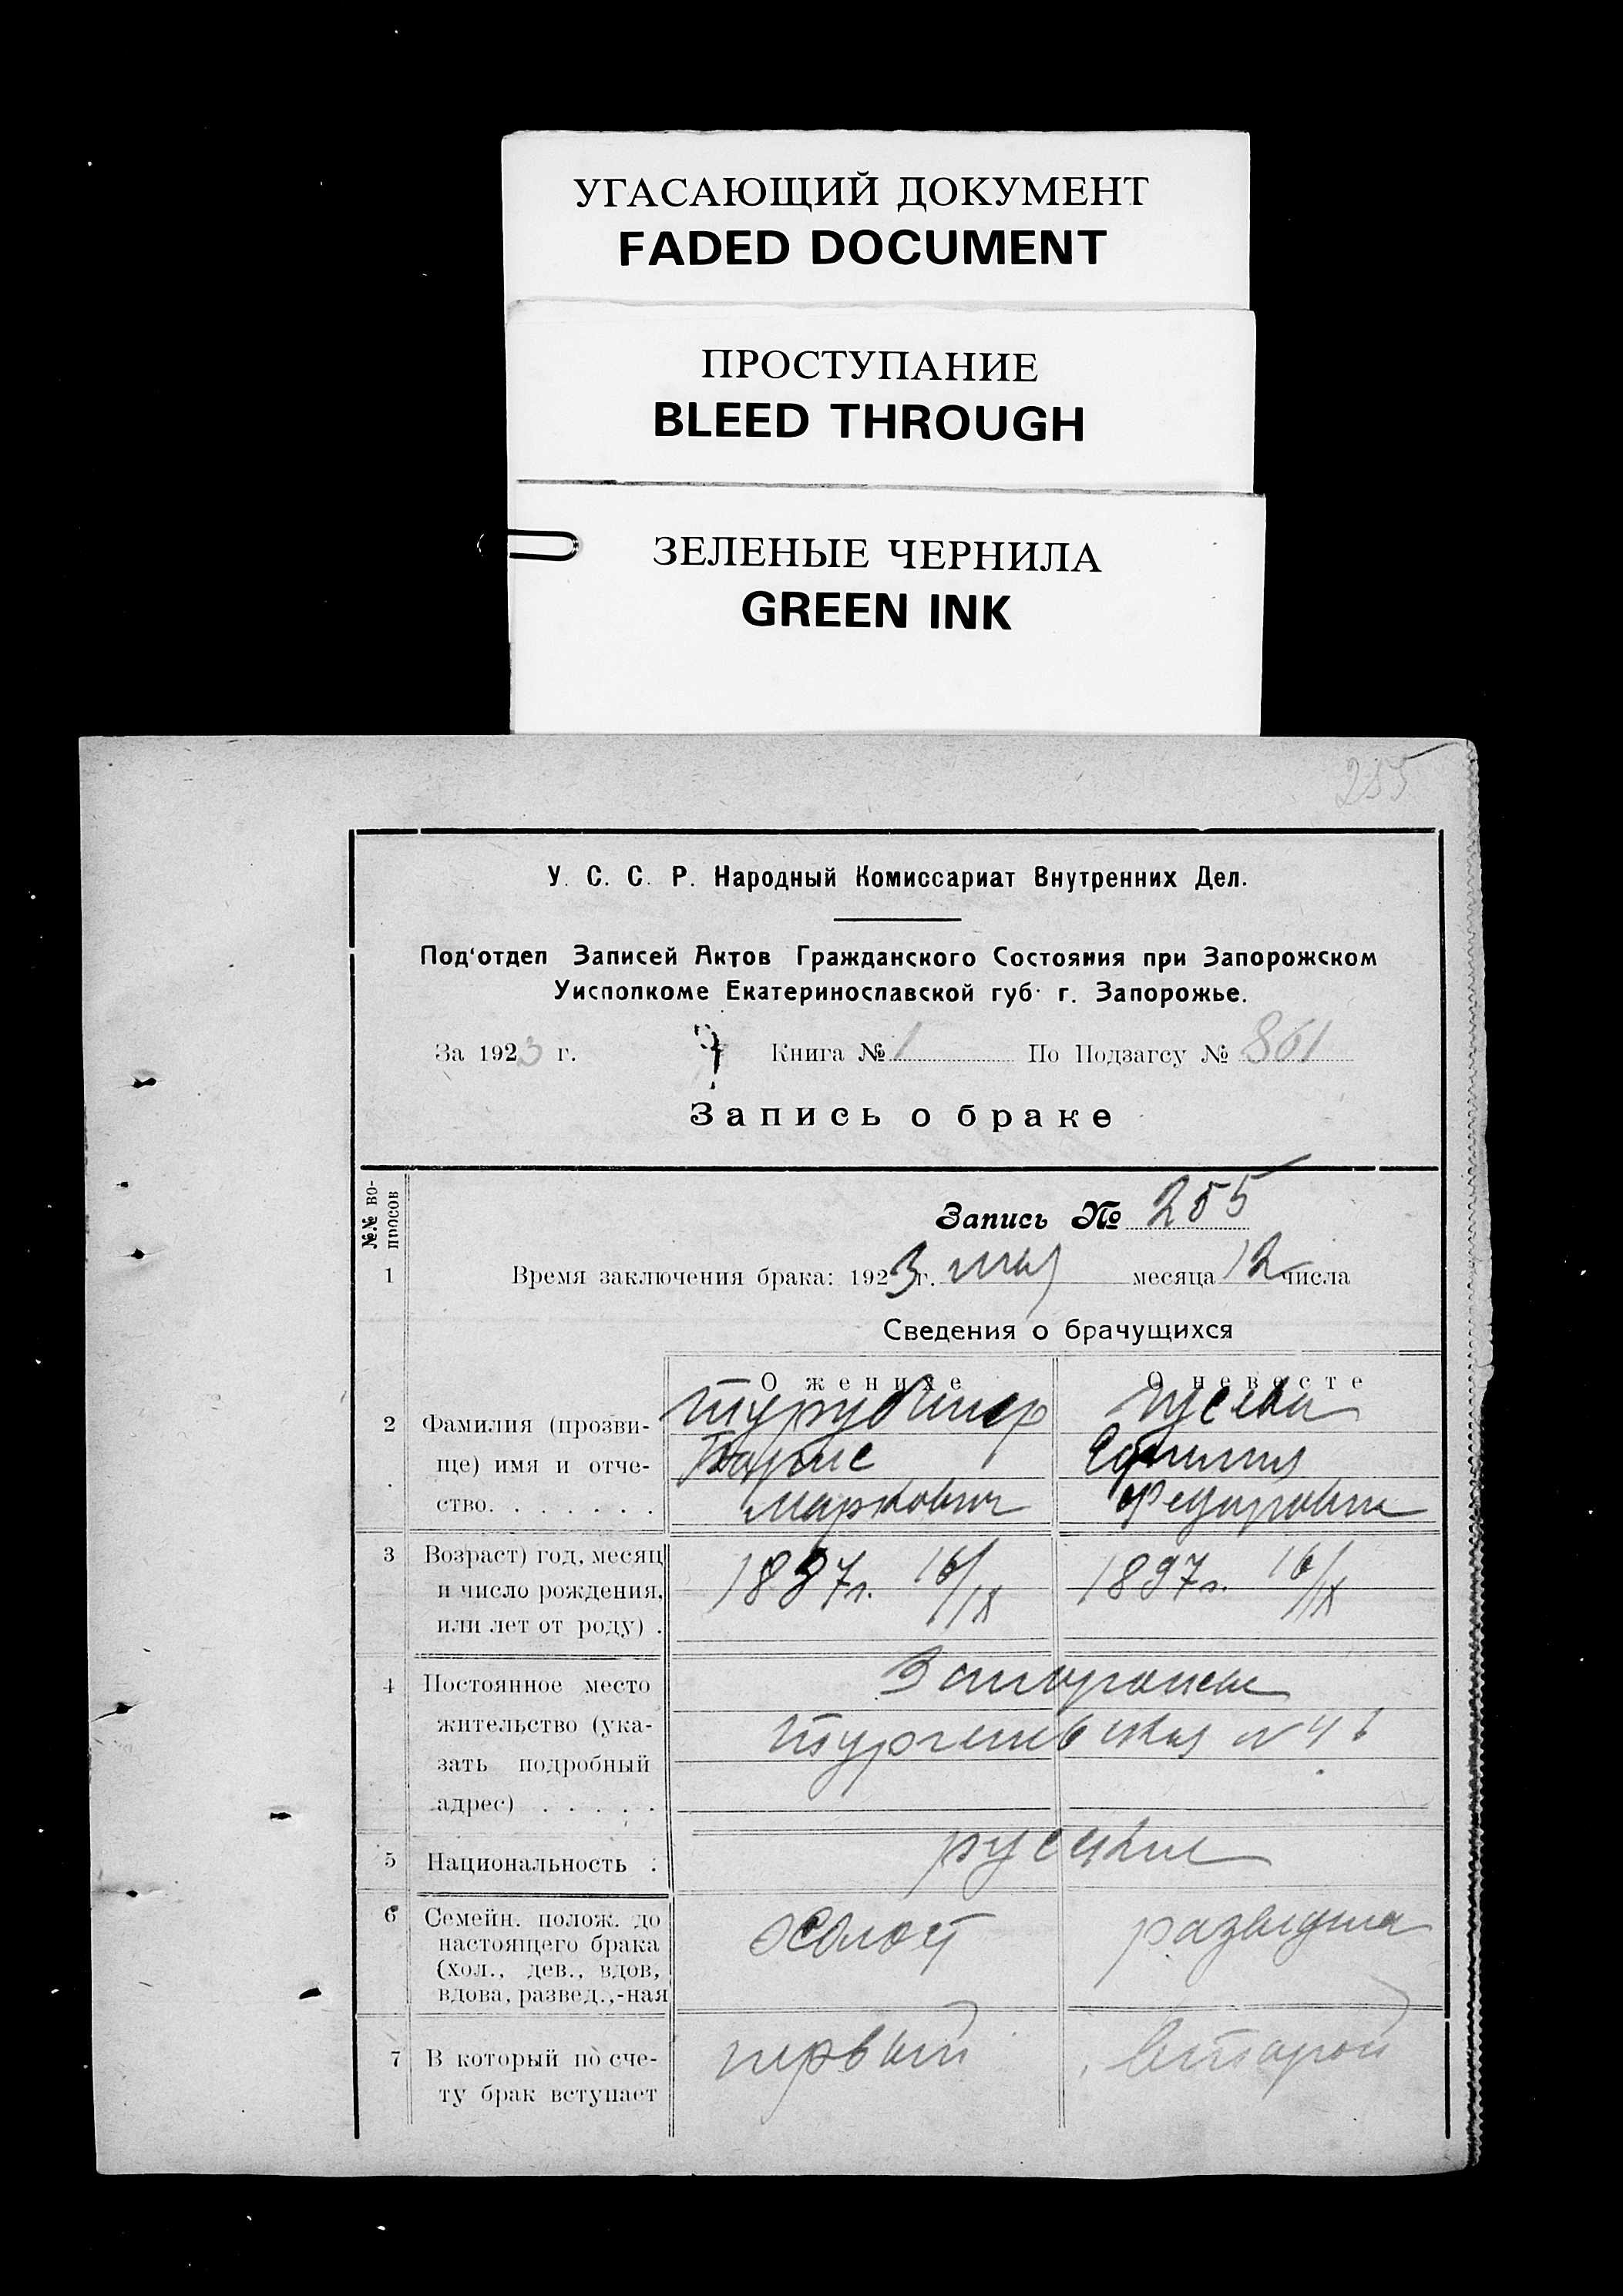 УГАСАЮЩИЙ ДОКУМЕНТ
FADED DOCUMENT
ПРОСТУПАНИЕ
BLEED THROUGH
ЗЕЛЕНЫЕ ЧЕРНИЛА
GREEN INK
255
У. С. С. Р. Народный Комиссариат Внутренних Дел.
Под‘отдел Записей Актов Гражданского Состояния при Запорожском
Уисполкоме Екатеринославской губ. г. Запорожье.
За 1923 г. Книга № 1 По Подзагсу № 861
Запись о браке
№№ во-
просов
Запись № 255
1 Время заключения брака: 1923 г. мая месяца 12 числа
Сведения о брачущихся
О женихе О невесте
2 Фамилия (прозви- Гусева
ще) имя и отче- Борис
ство. . . . . . . Маркович Федоровна
3 Возраст) год, месяц
и число рождения, 1897г. 16/IX 1897г. 16/IX
или лет от роду) .
4 Постоянное место Запорожье
жительство (ука- Тургеневская №
зать подробный
адрес) . . . . .
5 Национальность . русские
6 Семейн. полож. до
настоящего брака холост разведена
(хол., дев., вдов,
вдова, развед.,-ная
7 В который по сче- первый второй
ту брак вступает